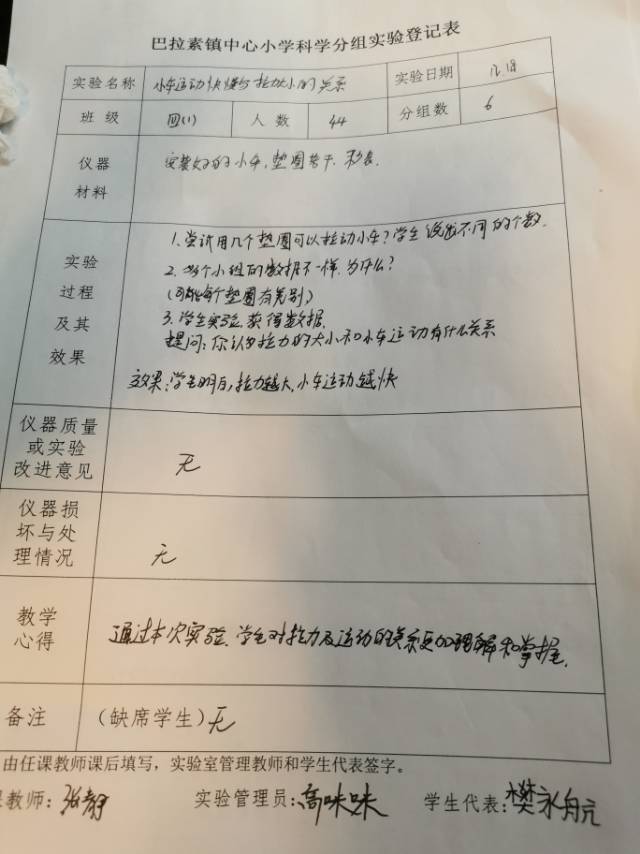 巴拉素镇中心小学科学分组实验登记表
实验名称 小车运动快慢与拉力大小的关系 实验日期 12.18
班级 四(1) 人数 44 分组数 6
仪器材料 安装好的小车,垫圈若干,秒表.
实验过程及其效果
1.尝试用几个垫圈可以拉动小车?学生说出不同的个数.
2.各个小组的数据不一样.为什么?
(可能每个垫圈有差别)
3.学生实验.获得数据.
提问:你认为拉力的大小和小车运动有什么关系
效果:学生明白,拉力越大,小车运动越快
仪器质量或实验改进意见 无
仪器损坏与处理情况 无
教学心得 通过本次实验.学生对拉力及运动的关系更加理解和掌握.
备注 (缺席学生)无
由任课教师课后填写,实验室管理教师和学生代表签字。
课教师:张静 实验管理员:高咪咪 学生代表:樊永航